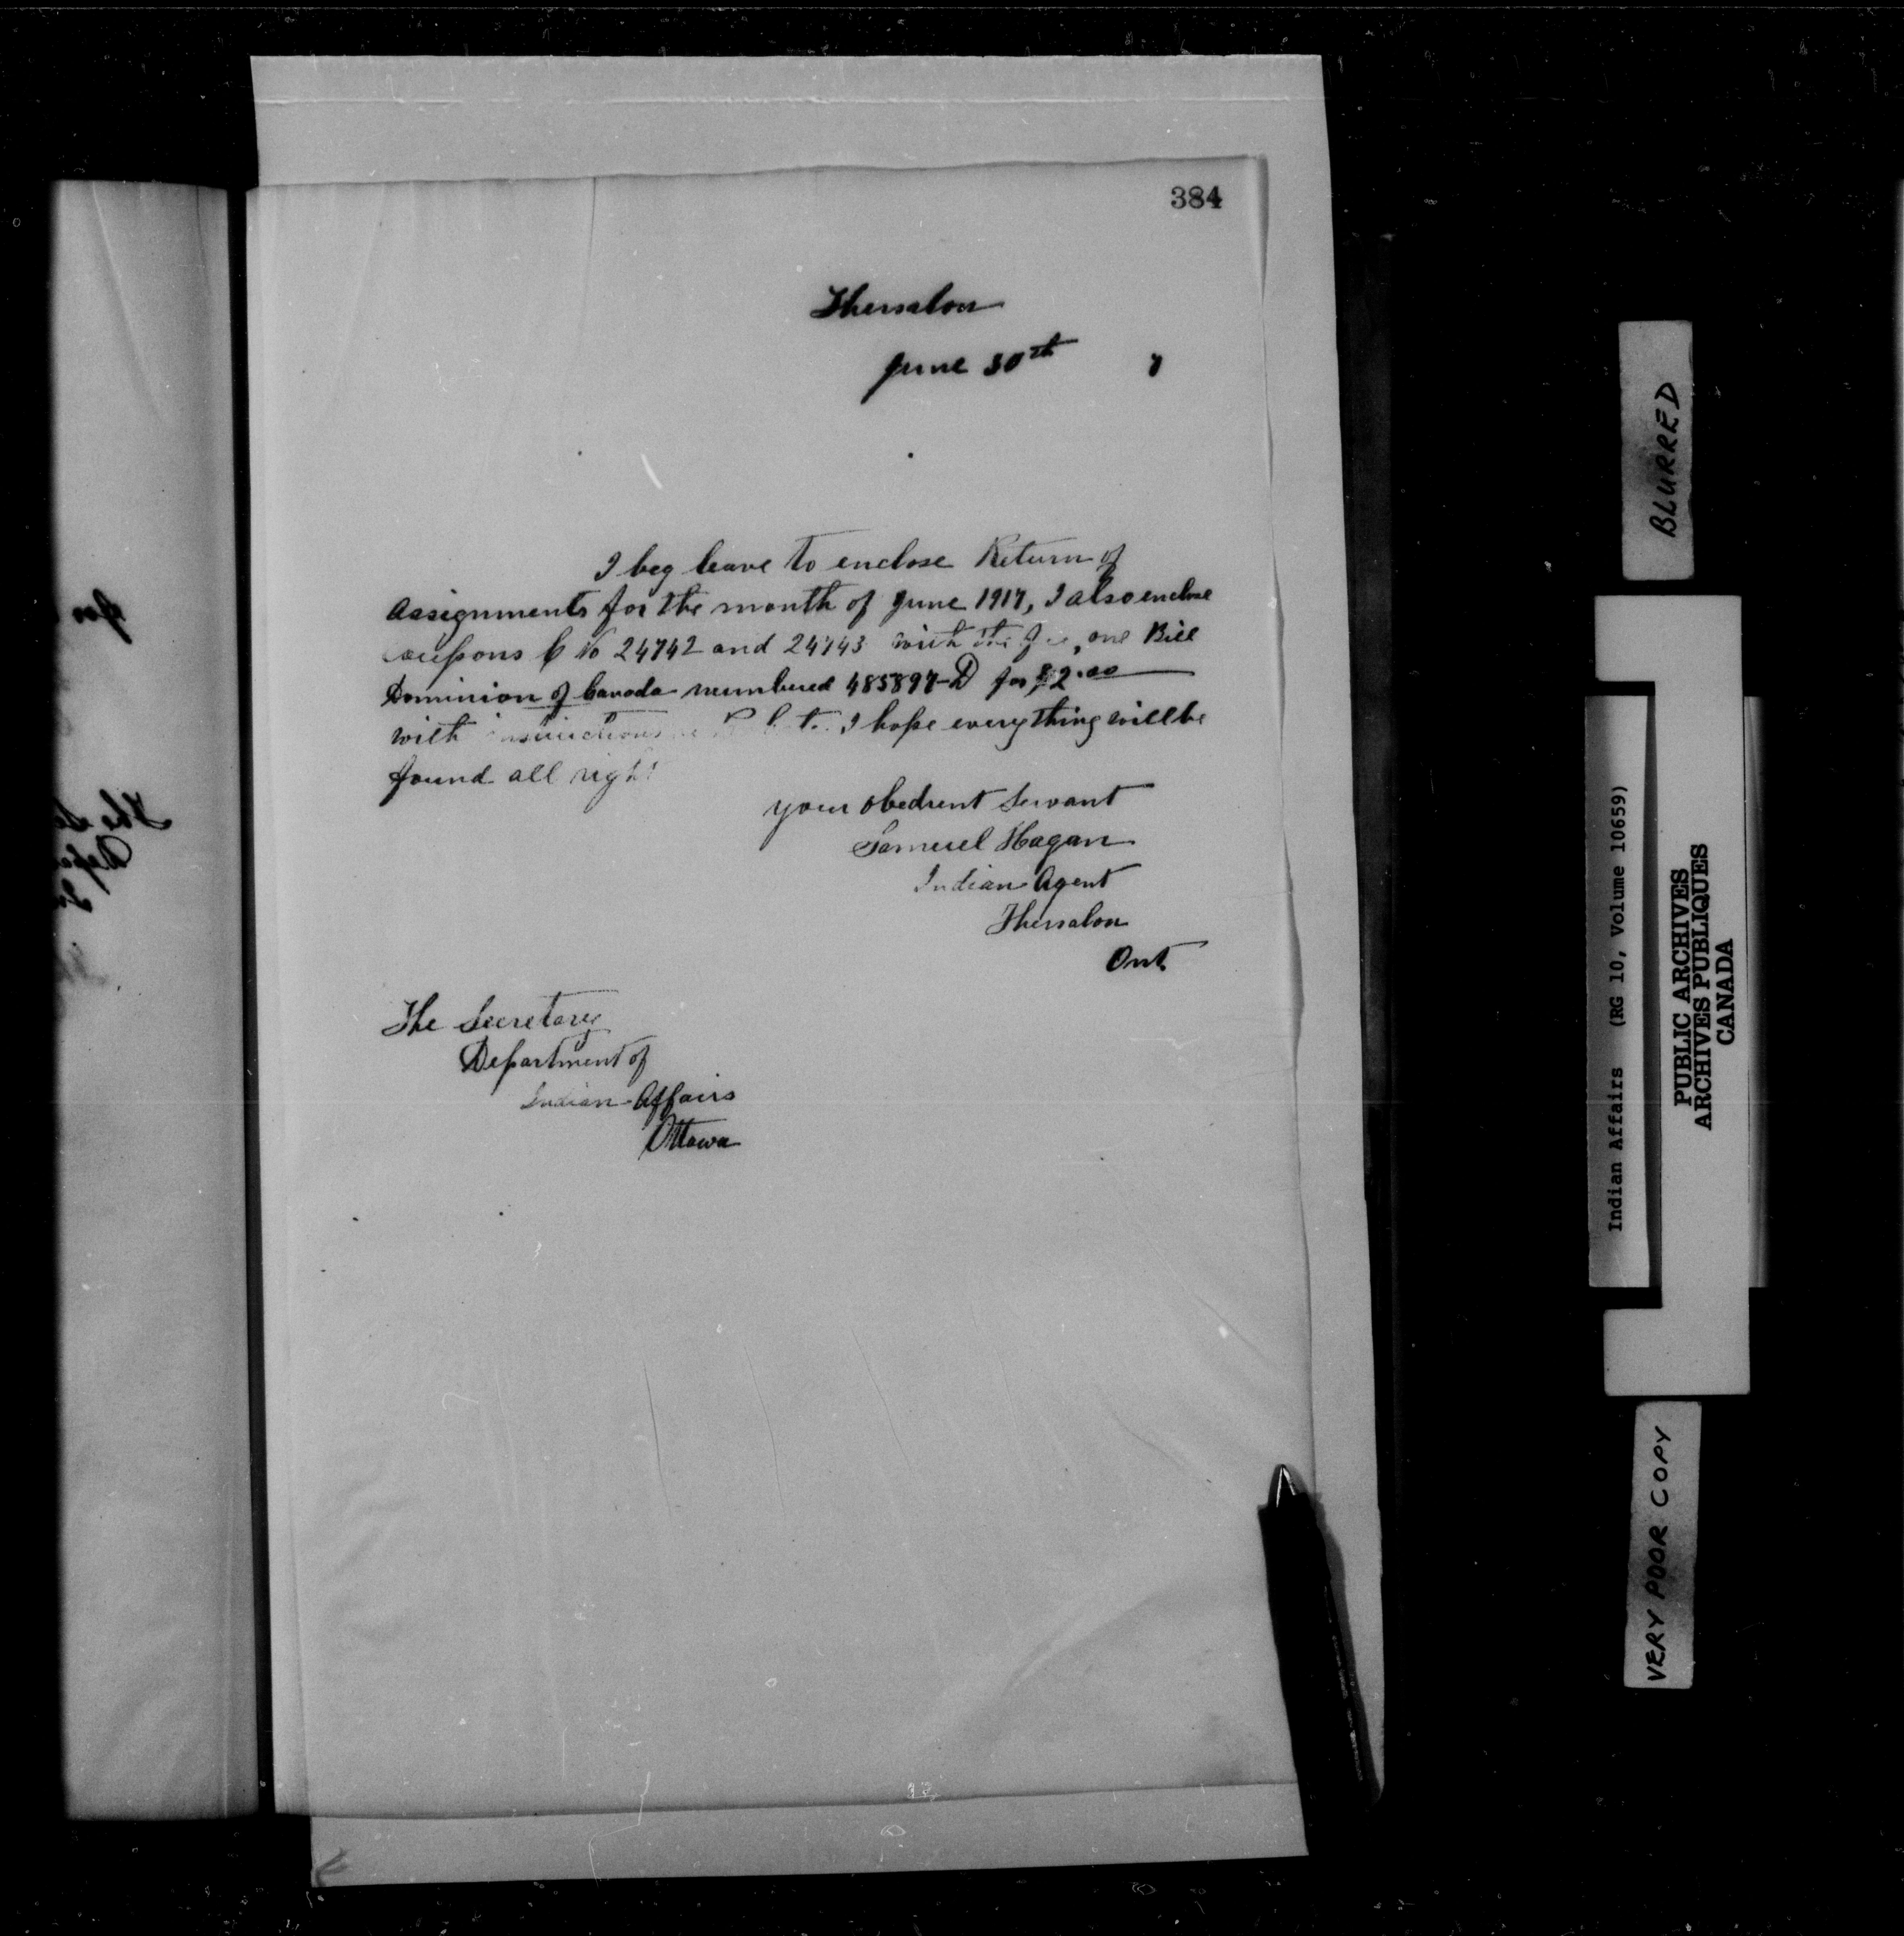 384
Thessalon
June 30th 7
I beg leave to enclose Return of
Assignments for the month of June 1917, I also enclose
coupons C No 24742 and 24743 with the fee, one Bill
Dominion of Canada numbered 485897-D for $2.00
with instructions I hope everything will be
found all right
your obedient Servant
Samuel Hagan
Indian Agent
Thessalon
Ont.
The Secretary
Department of
Indian Affairs
Ottawa
BLURRED
Indian Affairs (RG 10, Volume 10659)
PUBLIC ARCHIVES
ARCHIVES PUBLIQUES
CANADA
VERY POOR COPY